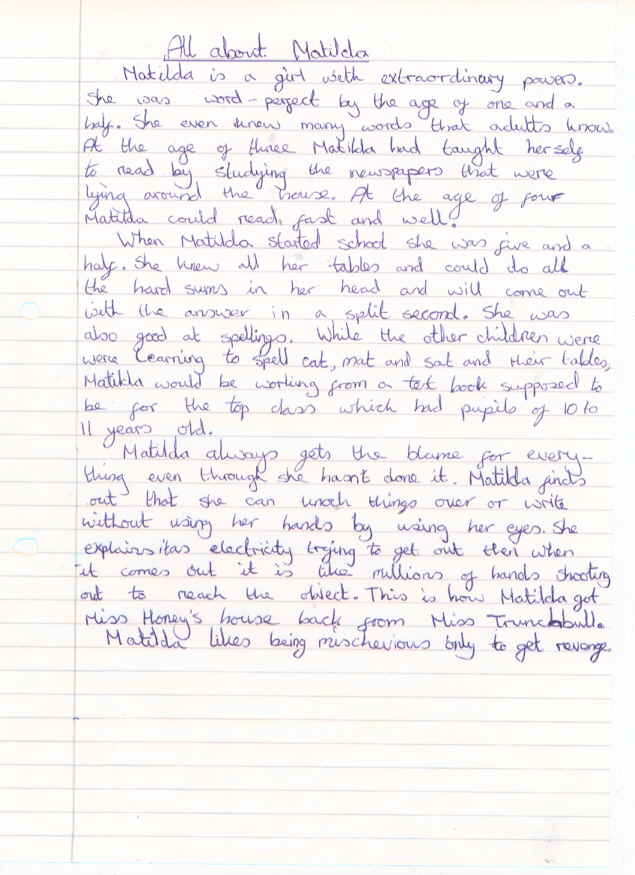 All about Matilda
Matilda is a girl with extraordinary powers.
She was word-perfect by the age of one and a
half. She even knew many words that adults know.
At the age of three Matilda had taught herself
to read by studying the newspapers that were
lying around the house. At the age of four
Matilda could read fast and well.
When Matilda started school she was five and a
half. She knew all her tables and could do all
the hard sums in her head and will come out
with the answer in a split second. She was
also good at spellings. While the other children were
were learning to spell cat, mat and sat and their tables,
Matilda would be working from a text book supposed to
be for the top class which had pupils of 10 to
11 years old.
Matilda always gets the blame for every-
thing even through she hasn't done it. Matilda finds
out that she can knock things over or write
without using her hands by using her eyes. She
explains it as electricity trying to get out then when
it comes out it is like millions of hands shooting
out to reach the object. This is how Matilda got
Miss Honey's house back from Miss Trunchbull.
Matilda likes being mischevious only to get revenge.